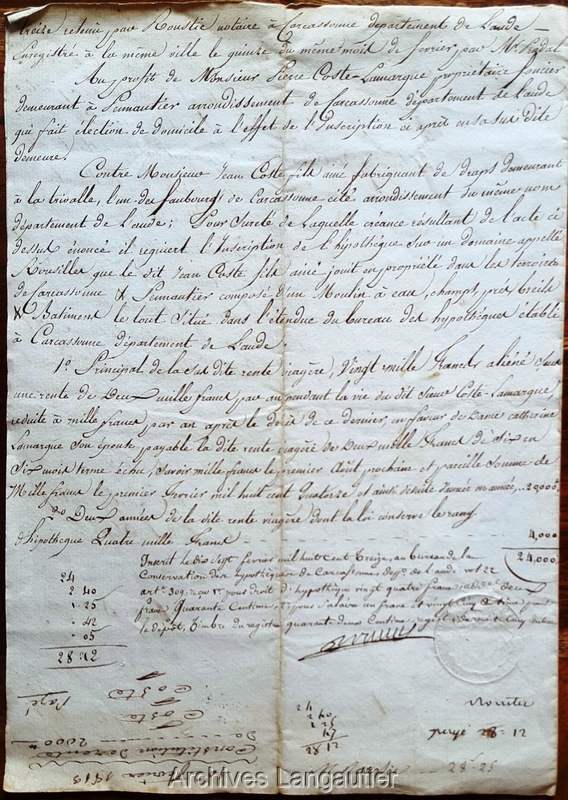 treize retenu, par Roustic notaire à Carcassonne département de Laude
Enregistré à la même ville le quinze du même mois de fevrier, par Mr.
Au profit de Monsieur Pierre Coste-Lamarque propriétaire foncier
demeurant à Pennautier arrondissement de Carcassonne département de Laude
qui fait élection de domicile à l'effet de l'Inscription ci après en sa sus dite
demeure.
Contre Monsieur Jean Coste fils ainé fabriquant de draps demeurant
à la trivalle, l'un des faubourgs de Carcassonne cité arrondissement du même nom
département de Laude; Pour Sureté de Laquelle créance résultant de l'acte ci
dessus énoncé il requiert l'Inscription de l'hipothèque sur un domaine appellé
Rousilles que le dit Jean Coste fils ainé jouit en propriété dans les terroirs
de Carcassonne & Pennautier composé d'un Moulin à eau, champs, près
& Batiment le tout situé dans l'étendue du bureau des hypothèques établi
à Carcassonne département de Laude.
1o. Principal de la sus dite rente viagère, Vingt mille francs aliéné sous
une rente de Deux mille francs par an pendant la vie du dit Sieur Coste-Lamarque,
reduite à mille francs par an après le décès de ce dernier, en faveur de Dame Catherine
Lamarque son épouse, payable la dite rente viagère de Deux mille francs de six en
six mois terme échu, savoir mille francs le premier Août prochain et pareille somme de
Mille francs le premier fevrier mil huit cent quatorze et ainsi de suite d'année en année, .. 20,000.
2o Deux années de la dite rente viagère dont la loi conserve le rang
d'hipothèque Quatre mille francs 4,000
24,000
Inscrit le Dix Sept fevrier mil huit cent treize, au bureau de la
Conservation des hypothèques de Carcassonne, dept. de l'aude vol. 22
art. 309 reçu 1o. pour Droit d'hypothèque vingt quatre francs deux
francs Quarante Centimes, pour salaire un franc et vingt cinq centimes pour
le dépôt, timbre du registre quarante deux Centimes
24
2 40
1 25
. 42
. 05
28 12
24
2 40
1 25
47
28 12
payé 28 = 12
28 25
payé
Coste
Coste
Constitution de rente
De 2000 #
fevrier 1813
Archives Langautier